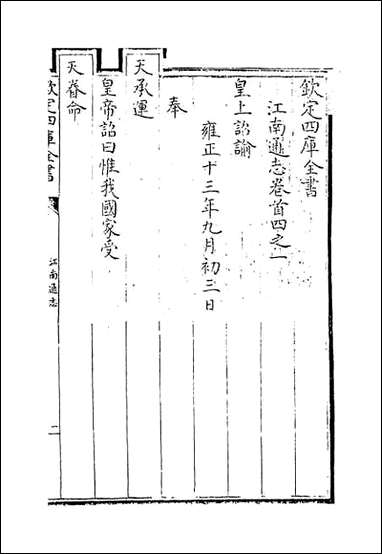 欽定四庫全書
江南通志卷首四之一
皇上詔諭
雍正十三年九月初三日
奉
天承運
皇帝詔曰惟我國家受
天眷命
欽定四庫全書
江南通志